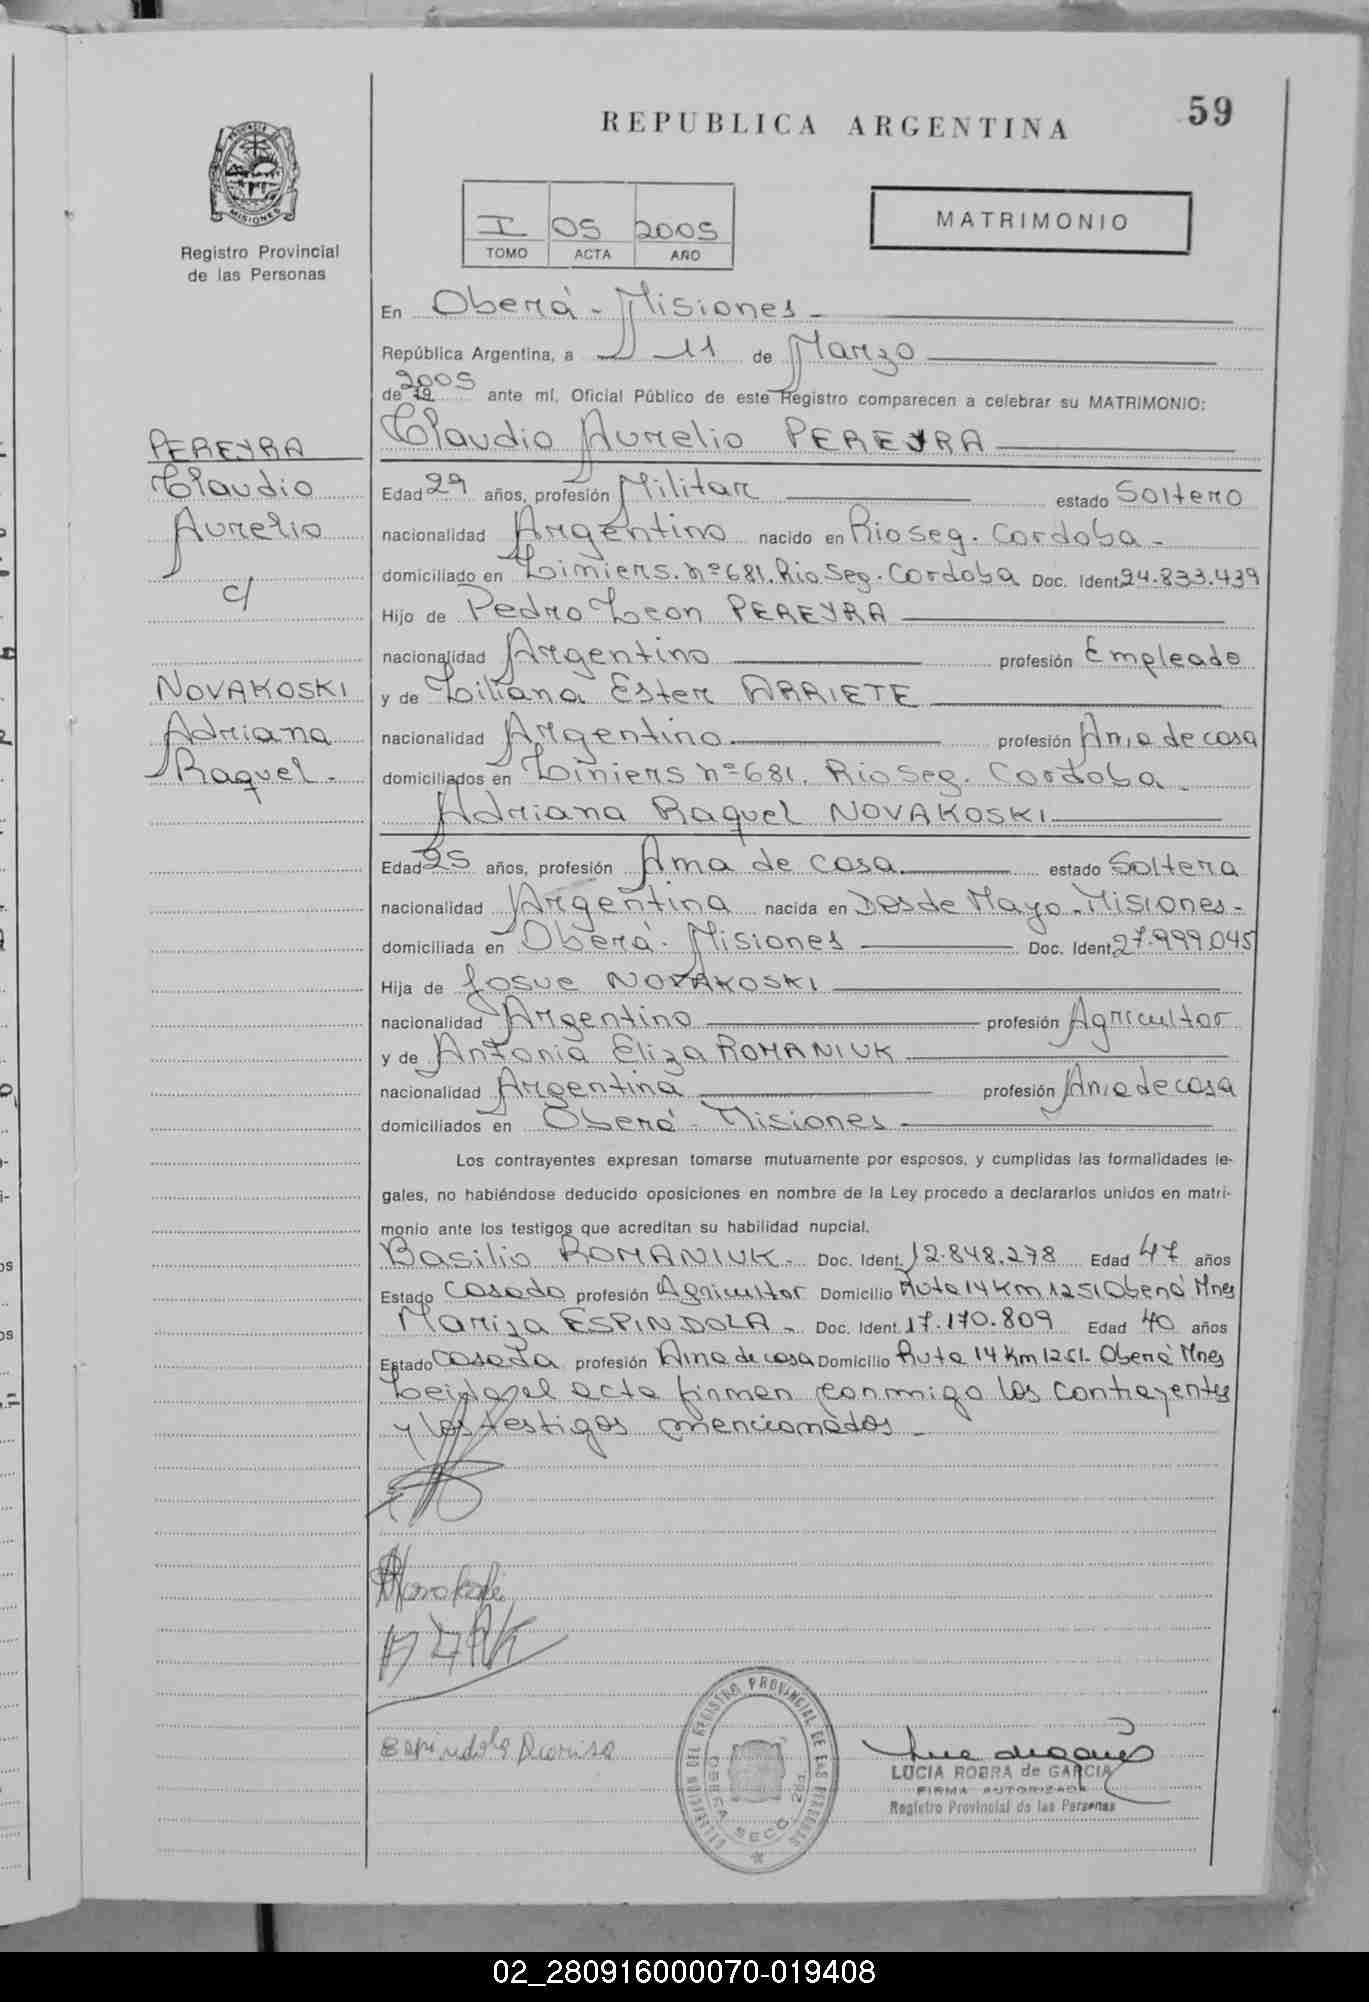 59
REPUBLICA ARGENTINA
PROVINCIA DE
MISIONES
Registro Provincial
de las Personas
I 05 2005
TOMO ACTA AÑO
MATRIMONIO
En Oberá - Misiones -
República Argentina, a 11 de Marzo
de 19 2005 ante mí, Oficial Público de este Registro comparecen a celebrar su MATRIMONIO:
Claudio Aurelio PEREYRA
PEREYRA
Claudio
Aurelio
c/
NOVAKOSKI
Adriana
Raquel -
Edad 29 años, profesión Militar estado Soltero
nacionalidad Argentino nacido en Rio Seg. Cordoba -
domiciliado en Liniers. nº 681. Rio Seg. Cordoba Doc. Ident 24.833.439
Hijo de Pedro Leon PEREYRA
nacionalidad Argentino profesión Empleado
y de Liliana Ester ARRIETE
nacionalidad Argentina profesión Ama de casa
domiciliados en Liniers nº 681. Rio Seg. Cordoba -
Adriana Raquel NOVAKOSKI
Edad 25 años, profesión Ama de casa estado Soltera
nacionalidad Argentina nacida en Dos de Mayo - Misiones -
domiciliada en Oberá - Misiones Doc. Ident 27.999.045
Hija de Josue NOVAKOSKI
nacionalidad Argentino profesión Agricultor
y de Antonia Eliza ROMANIUK
nacionalidad Argentina profesión Ama de casa
domiciliados en Oberá - Misiones
Los contrayentes expresan tomarse mutuamente por esposos, y cumplidas las formalidades le-
gales, no habiéndose deducido oposiciones en nombre de la Ley procedo a declararlos unidos en matri-
monio ante los testigos que acreditan su habilidad nupcial.
Basilio ROMANIUK - Doc. Ident. 12.848.278 Edad 47 años
Estado Casado profesión Agricultor Domicilio Ruta 14 Km 1251 Oberá Mnes
Mariza ESPINDOLA - Doc. Ident. 17.170.809 Edad 40 años
Estado Casada profesión Ama de casa Domicilio Ruta 14 Km 1251. Oberá Mnes
Leida el acta firman conmigo los contrayentes
y los testigos mencionados -
Espindola Mariza
DELEGACION DEL REGISTRO PROVINCIAL DE LAS PERSONAS
OBERA SECC. 2da.
LUCIA ROBRA de GARCIA
FIRMA AUTORIZADA
Registro Provincial de las Personas
02_280916000070-019408